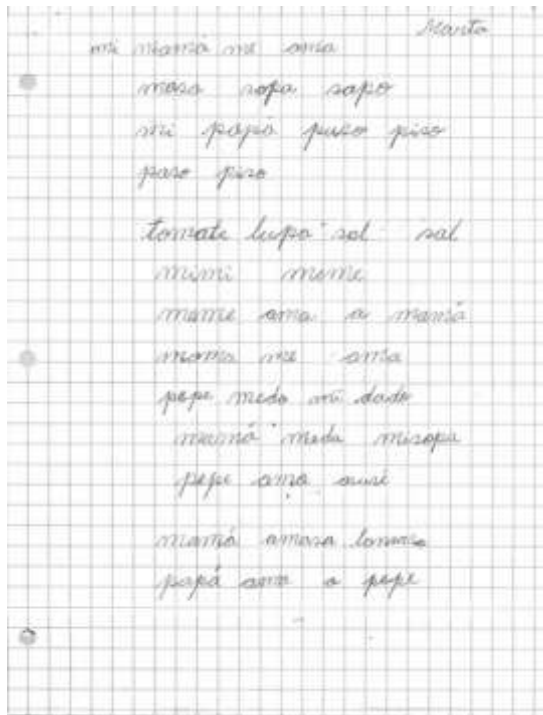 Marta
mi mamá me ama
mesa sopa sapo
mi papá puso piso
paso piso
tomate lupa sol sal
mimi meme
meme ama a mamá
mama me ama
pepe meda mi dado
mamá meda misopa
pepe ama
mamá amasa
papá ama a pepe